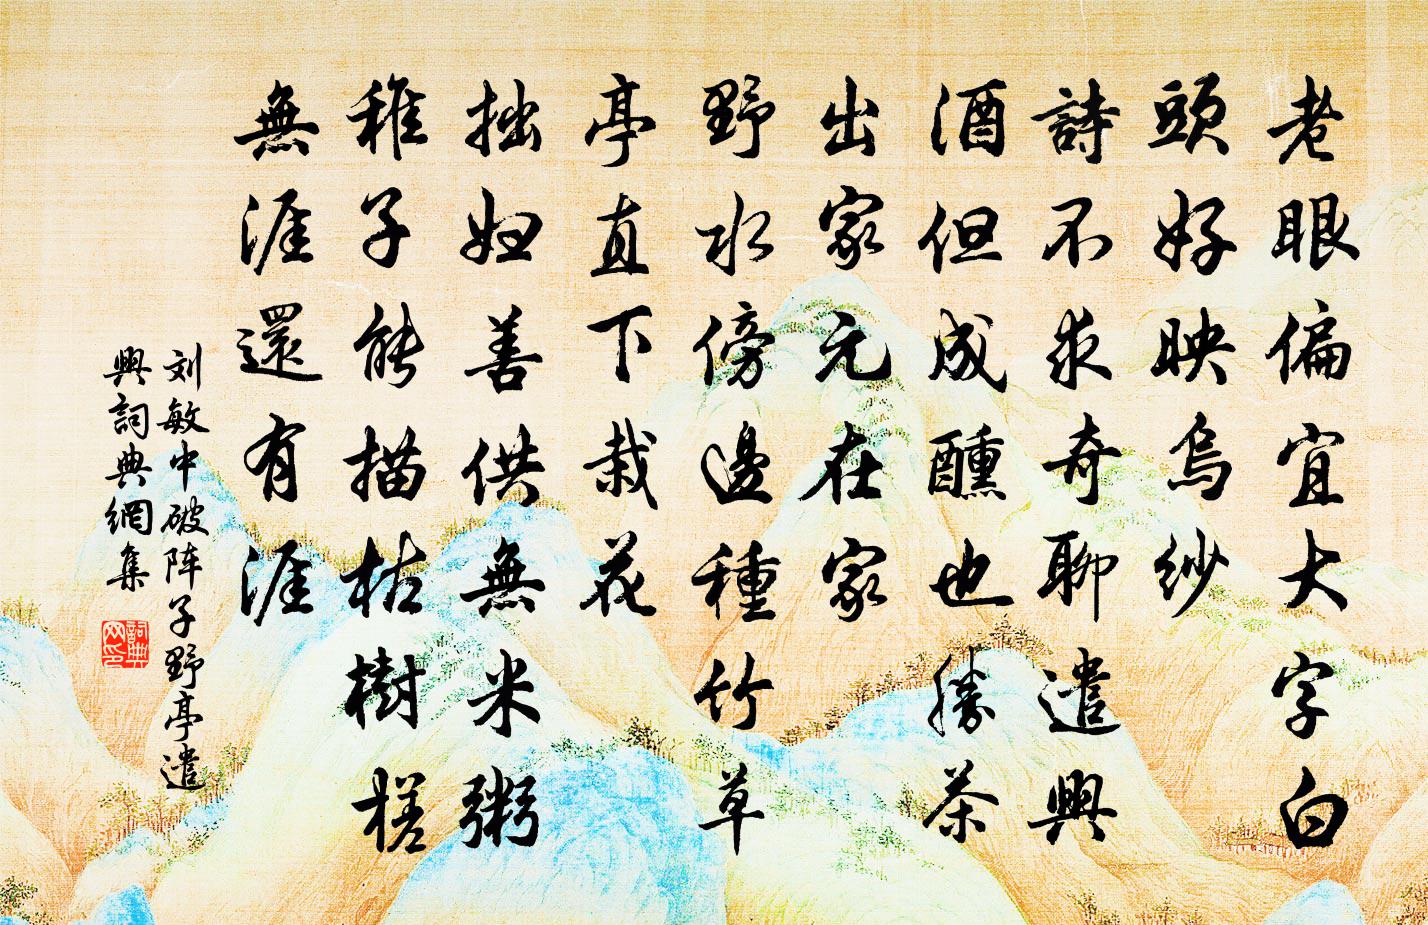 老眼偏宜大字白
頭好映烏紗
詩不求奇聊遣興
酒但成醺也勝茶
出家元在家
野水傍邊種竹草
亭直下栽花
拙妇善供無米粥
稚子能描枯樹槎
無涯還有涯
刘敏中破阵子野亭遣
興詞典網集
詞典
网印